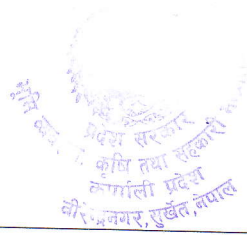 प्रदेश सरकार
कृषि तथा सहकारी
कर्णाली प्रदेश
वीरेन्द्रनगर, सुर्खेत, नेपाल